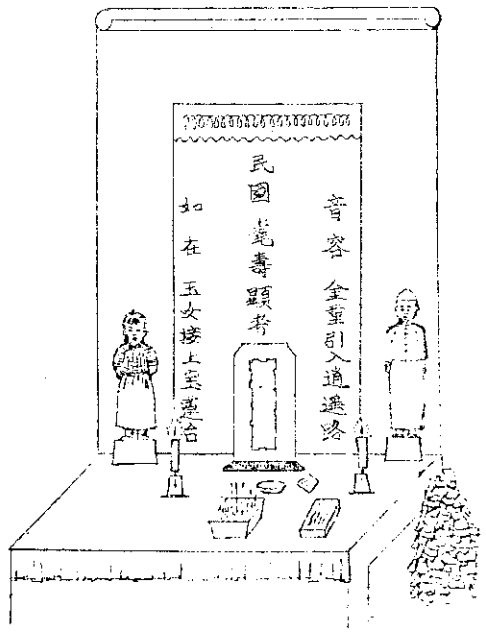 音容 金童引入逍遙路
民國 耄壽顯考
如在 玉女接上宝蓮台